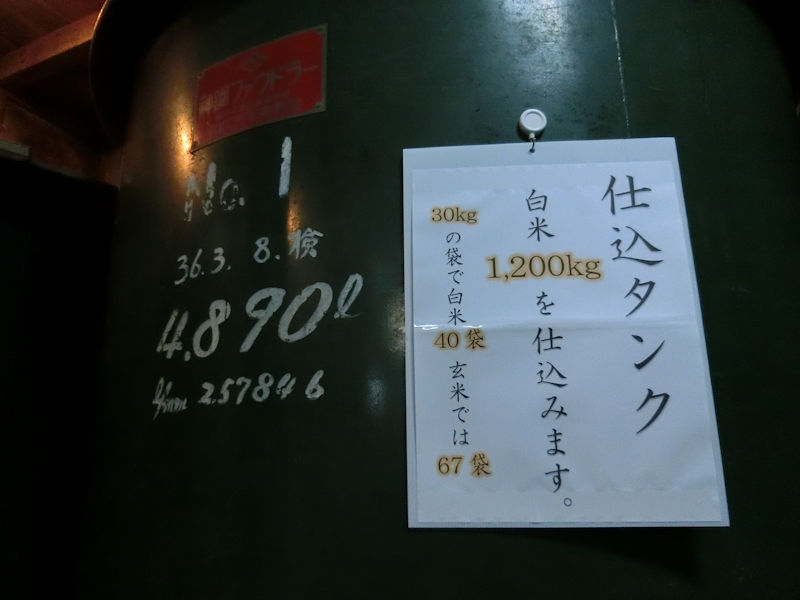 神鋼ファウドラー
No. 1
36. 3. 8. 検
4.890ℓ
ℓ/mm 2.57846
仕込タンク
白米1,200kgを仕込みます。
30kgの袋で白米40袋 玄米では67袋